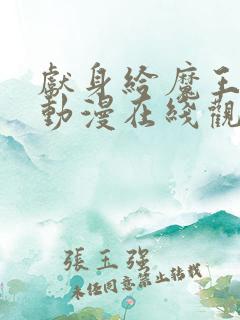 獻身給魔王
動漫在綫觀
張玉強
未經同意禁止轉載